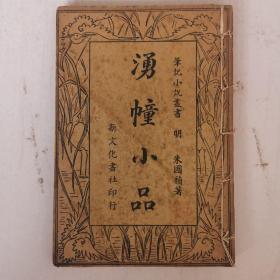 筆記小說叢書 明 朱國禎著
湧幢小品
新文化書社印行